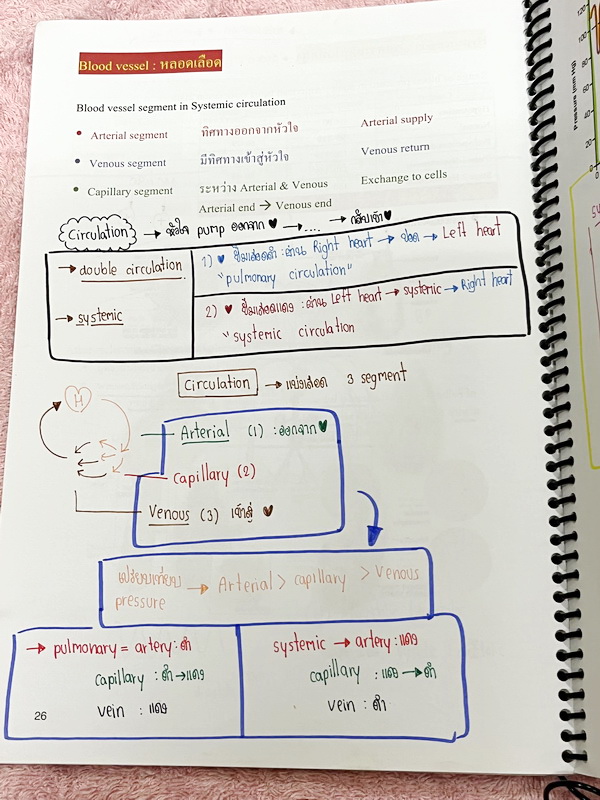 Blood vessel : หลอดเลือด
Blood vessel segment in Systemic circulation
• Arterial segment ทิศทางออกจากหัวใจ Arterial supply
• Venous segment มีทิศทางเข้าสู่หัวใจ Venous return
• Capillary segment ระหว่าง Arterial & Venous Exchange to cells
Arterial end → Venous end
Circulation → หัวใจ pump ออกจาก ♥ → .... → กลับเข้า ♥
→ double circulation
→ systemic
1) ♥ ปั๊มเลือดดำ : ผ่าน Right heart → ปอด → Left heart
"pulmonary circulation"
2) ♥ ปั๊มเลือดแดง : ผ่าน Left heart → systemic → Right heart
"systemic circulation
Circulation → แบ่งเลือด 3 segment
H
Arterial (1) : ออกจาก ♥
capillary (2)
Venous (3) เข้าสู่ ♥
เปรียบเทียบ → Arterial > capillary > Venous
pressure
→ pulmonary = artery : ดำ
capillary : ดำ → แดง
vein : แดง
systemic → artery : แดง
capillary : แดง → ดำ
vein : ดำ
26
Pressure (mm Hg)
120
100
80
60
40
20
0